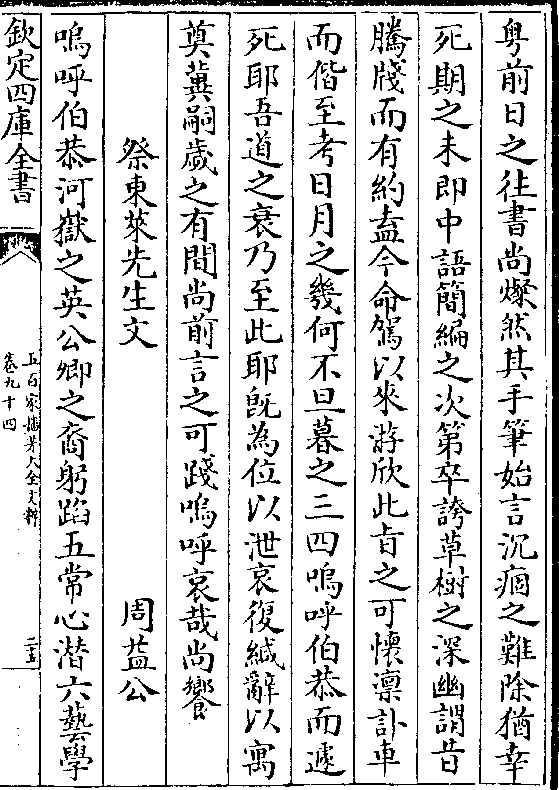 粤前日之往書尚燦然其手筆始言沉痼之難除猶幸
死期之未即中語簡編之次第卒誇草樹之深幽謂昔
騰牋而有約盍今命駕以來游欣此旨之可懷凛訃車
而偕至考日月之幾何不旦暮之三四嗚呼伯恭而遽
死耶吾道之衰乃至此耶既為位以泄哀復緘辭以寓
奠冀嗣歲之有間尚前言之可踐嗚呼哀哉尚饗
祭東萊先生文 周益公
嗚呼伯恭河嶽之英公卿之裔躬蹈五常心潜六藝學
欽定四庫全書
五百家播芳大全文粹
卷九十四